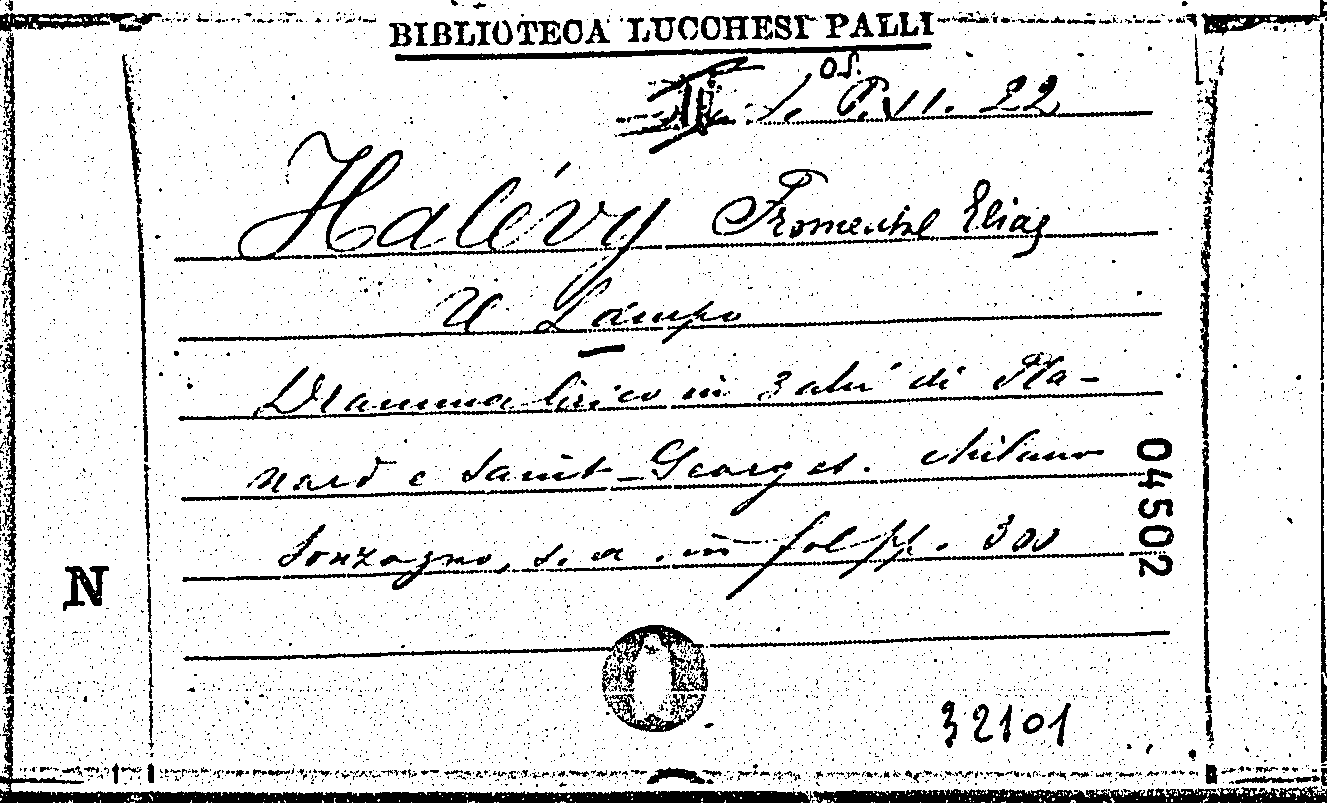 BIBLIOTECA LUCCHESI PALLI
OS.
P. VI. 22
Halévy Fromental Elias
Il Lampo
Dramma lirico in 3 atti di Pla-
nard e Saint-Georges. Milano
Sonzogno, s. a. in fol pp. 300
04502
N
32101